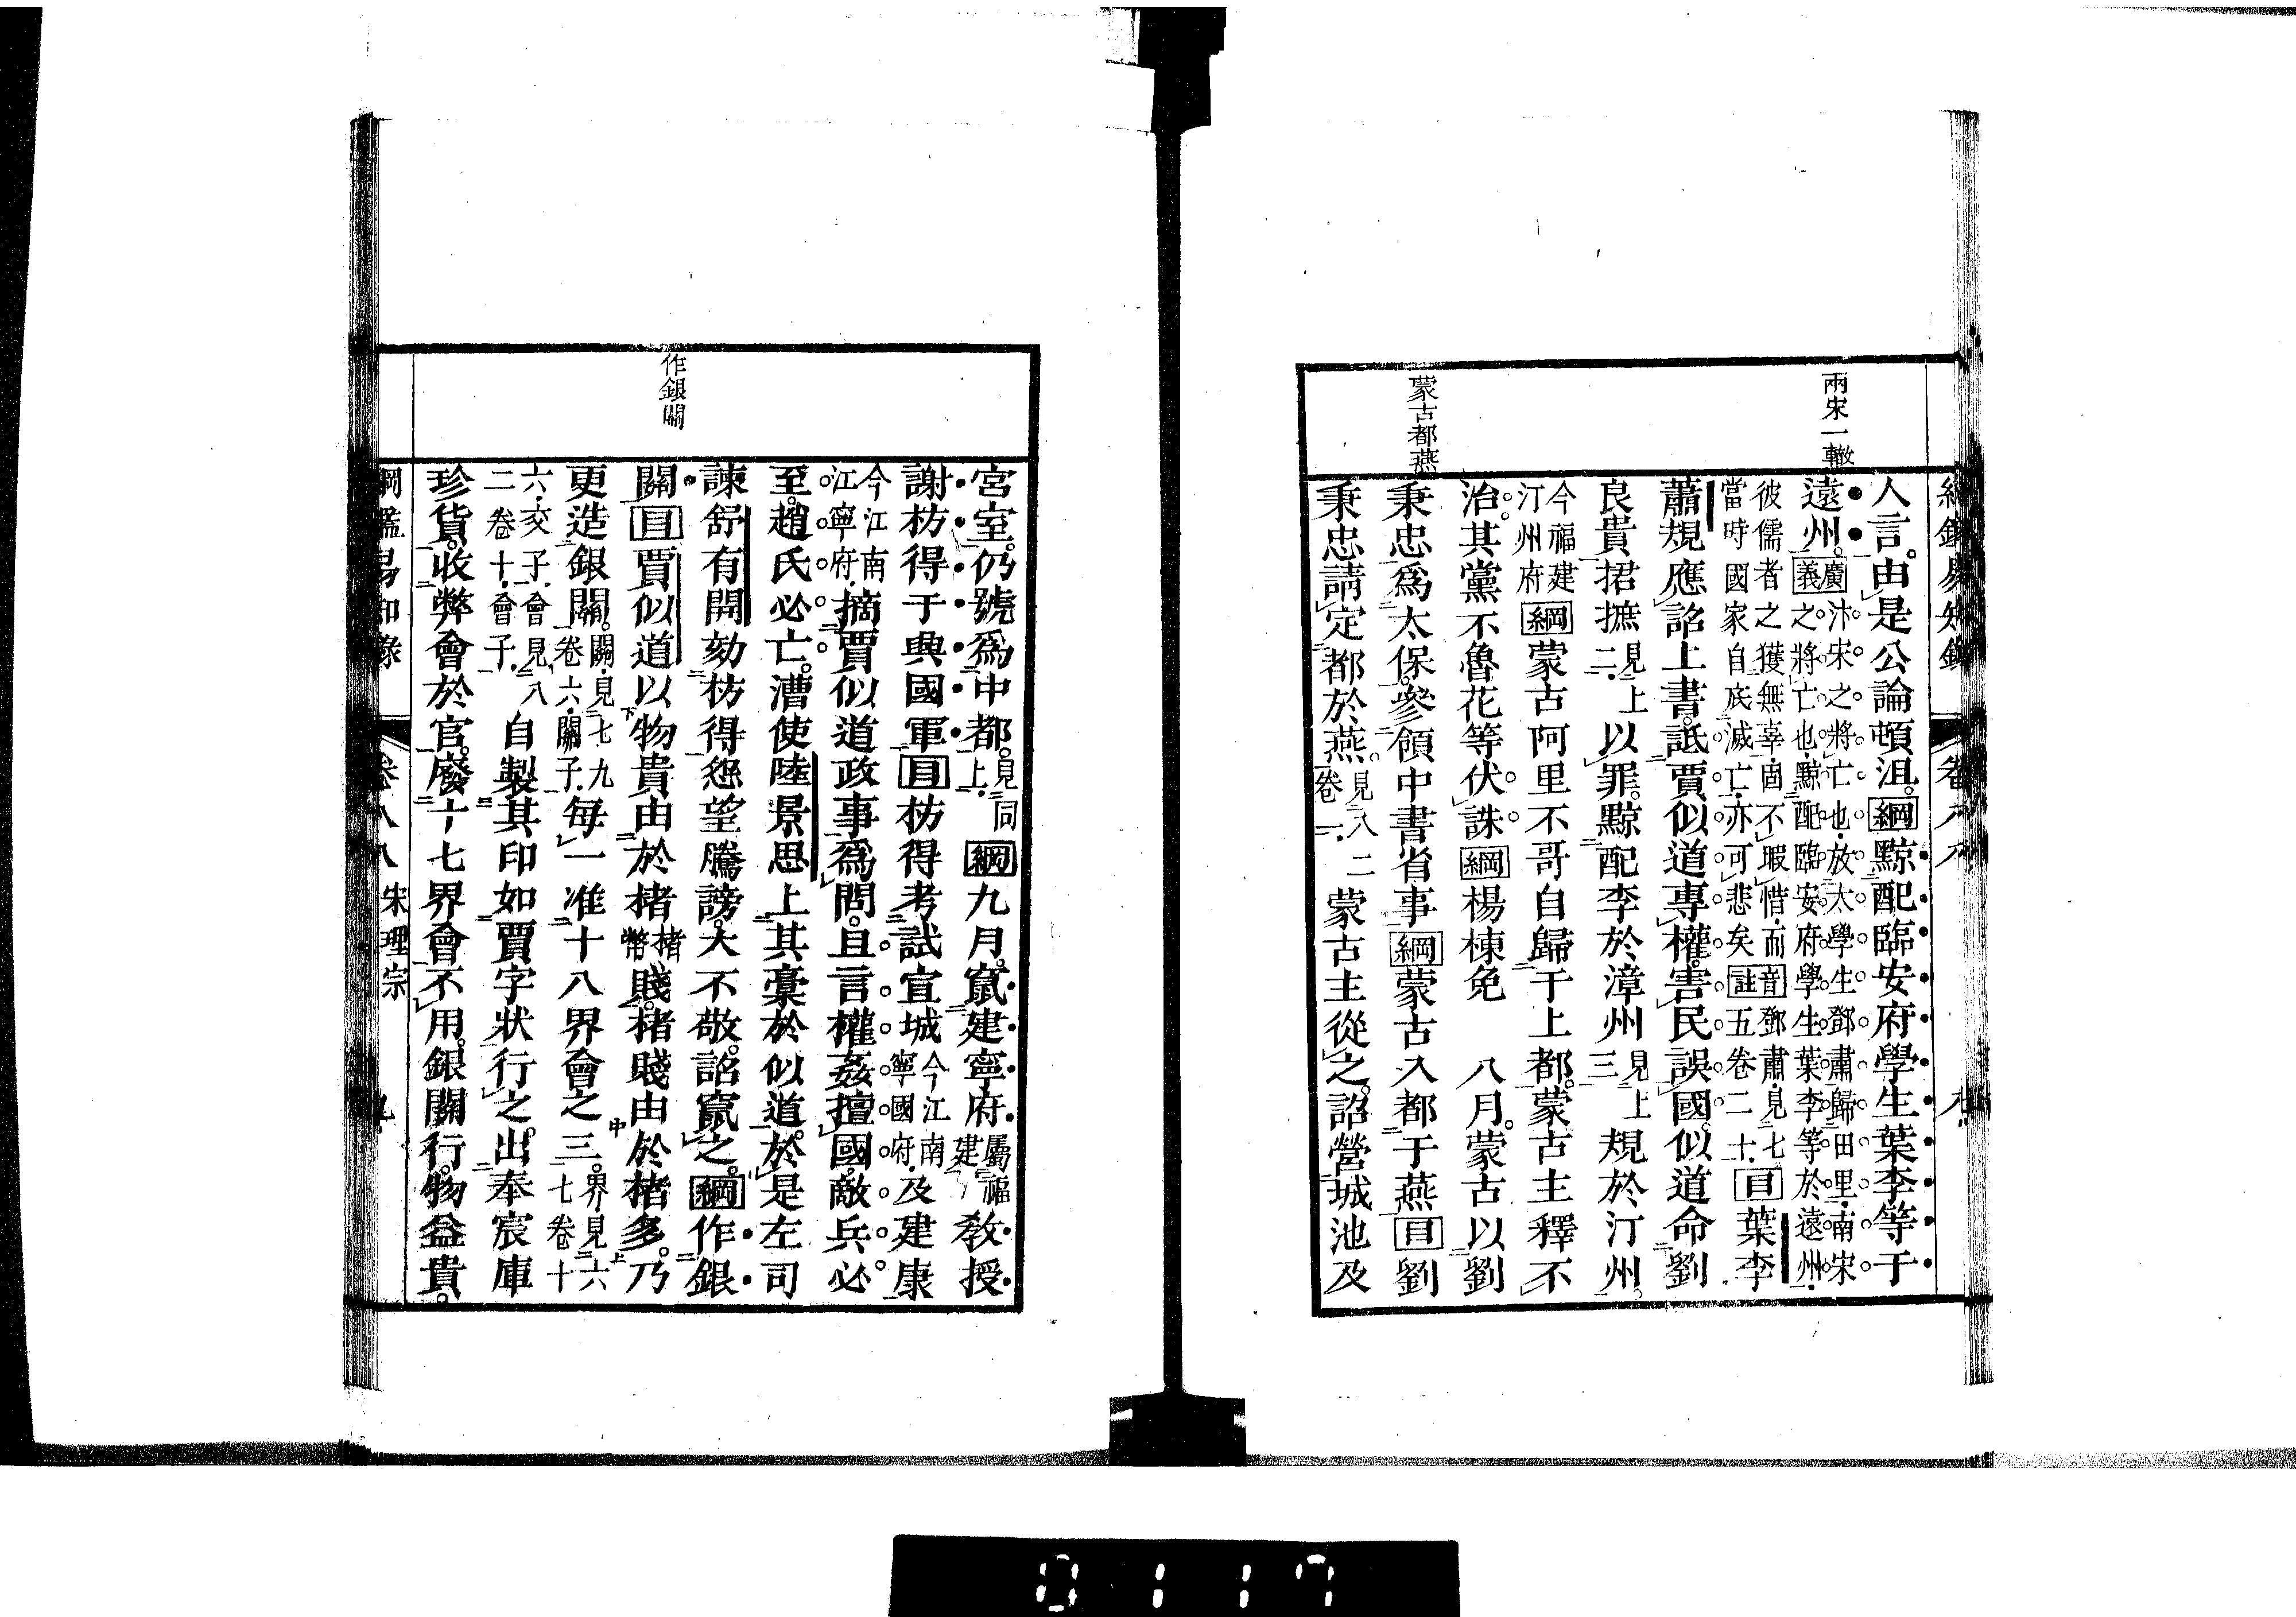 兩宋一轍
蒙古都燕
人言。由是公論頓沮。綱黥配臨安府學生葉李等于
遠州。廣義汴宋之將亡也。放太學生鄧肅歸田里。南宋之將亡也。黥配臨安府學生葉李等於遠州。
彼儒者之獲無辜。固不暇惜。而當時國家自底滅亡。亦可悲矣音註鄧肅。見七五卷二十。目葉李
蕭規應詔上書。詆賈似道專權。害民誤國。似道命劉
良貴捃摭見上二。以罪。黥配李於漳州見上三規於汀州。
今福建汀州府綱蒙古阿里不哥自歸于上都。蒙古主釋不
治。其黨不魯花等伏誅綱楊棟免 八月。蒙古以劉
秉忠爲太保。參領中書省事綱蒙古入都于燕目劉
秉忠請定都於燕。見八二卷一。蒙古主從之。詔營城池及
作銀關
宮室。仍號爲中都。見同上。綱九月。竄建寧府屬福建教授
謝枋得于興國軍目枋得考試宣城今江南寧國府。及建康
今江南江寧府。摘賈似道政事爲問。且言權姦擅國。敵兵必
至。趙氏必亡。漕使陸景思上其稾於似道。於是左司
諫舒有開劾枋得怨望騰謗。大不敬。詔竄之。綱作銀
關目賈似道以物貴由於楮楮幣賤。楮賤由於楮多。乃
更造銀關。關。見七九卷六。關子。每一准十八界會之三。界見六七卷十
六。交子。會見八二卷十。會子。自製其印如賈字狀行之。出奉宸庫
珍貨。收弊會於官。廢十七界會不用。銀關行。物益貴。
綱鑑易知錄 卷八八 宋理宗
0117